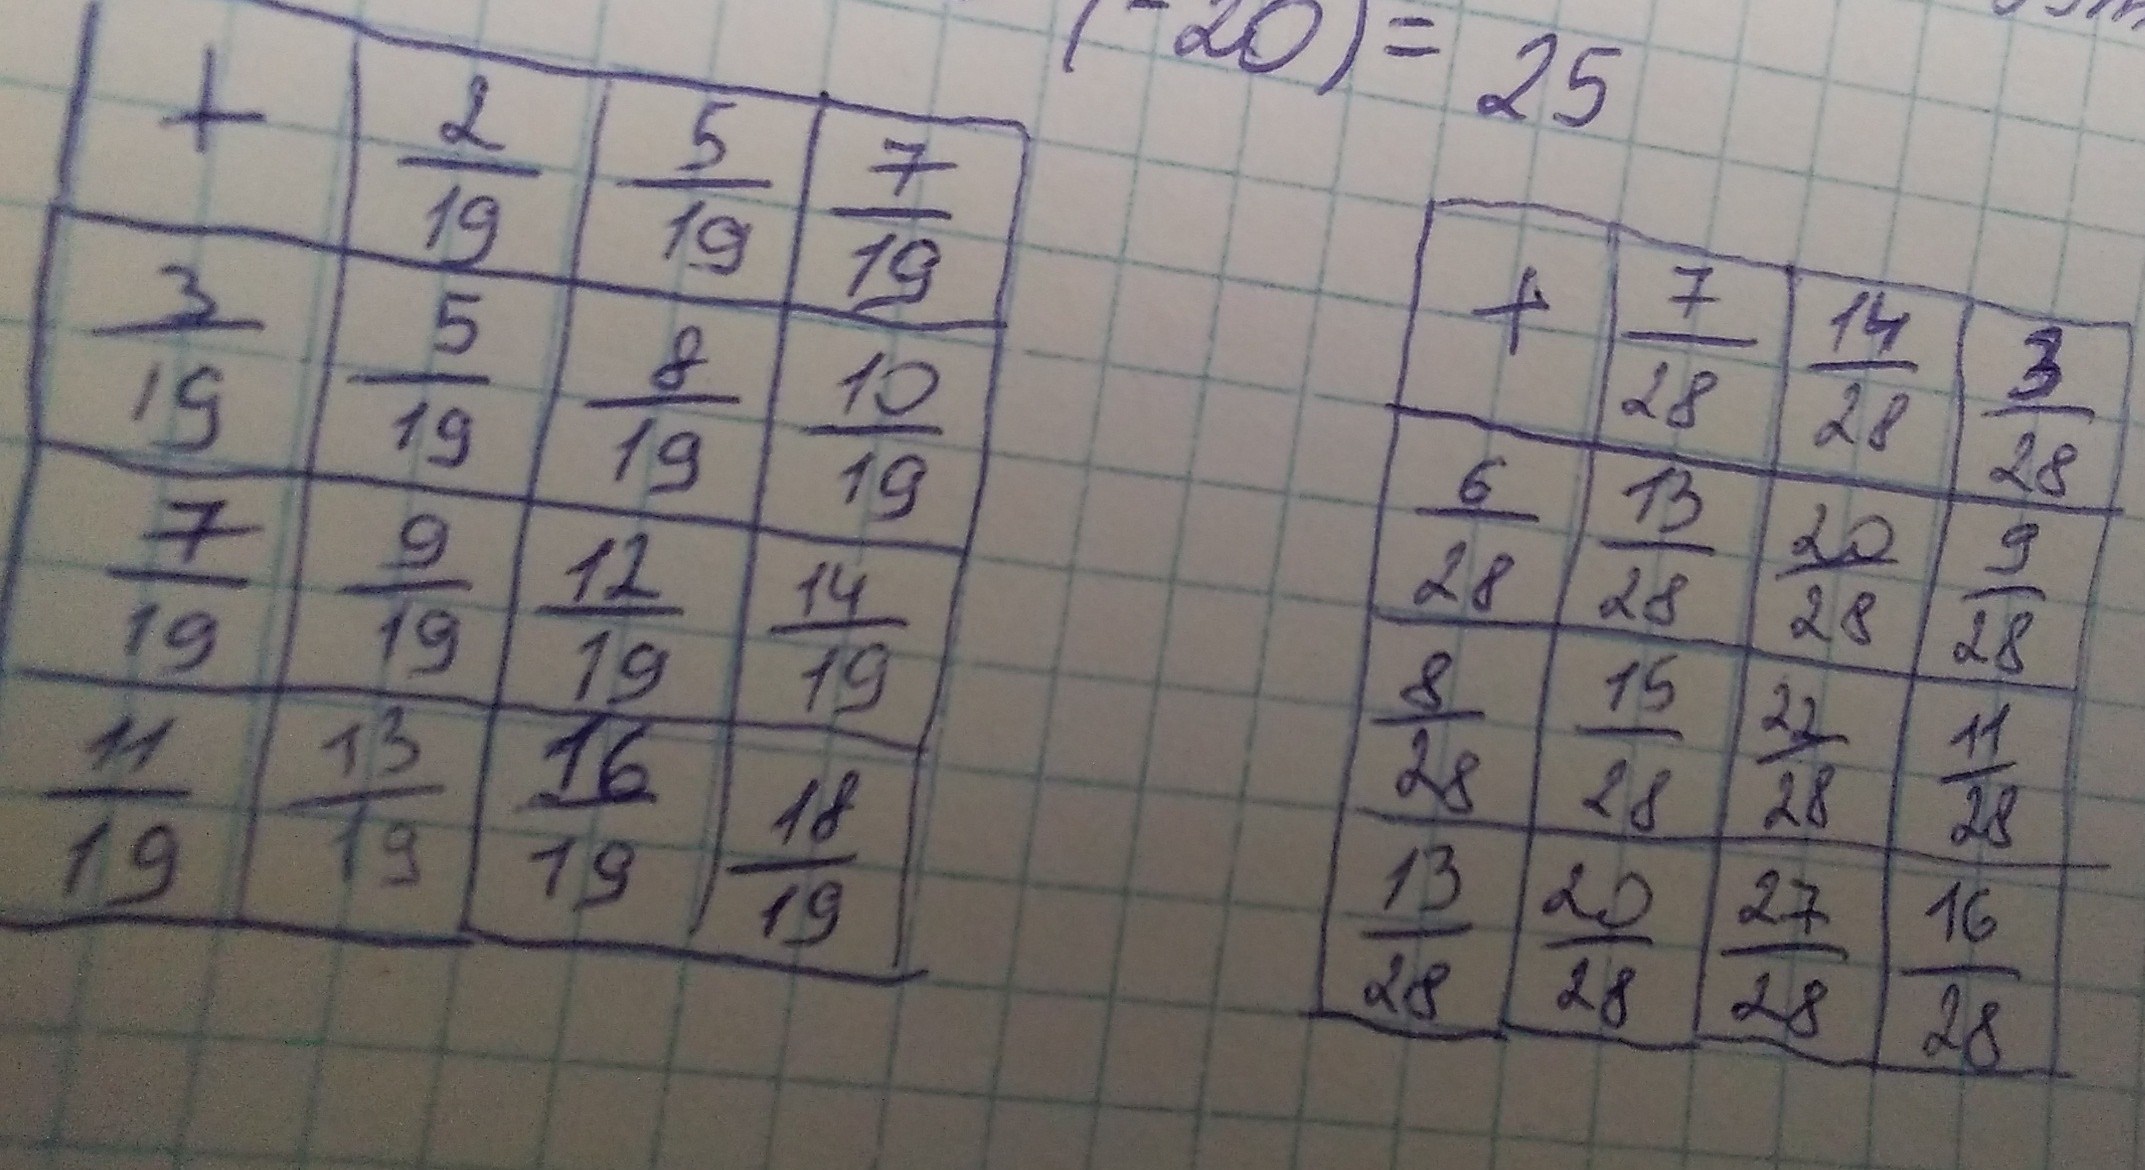 (-20) = 25
+ 2/19 5/19 7/19
3/19 5/19 8/19 10/19
7/19 9/19 12/19 14/19
11/19 13/19 16/19 18/19
+ 7/28 14/28 3/28
6/28 13/28 20/28 9/28
8/28 15/28 22/28 11/28
13/28 20/28 27/28 16/28